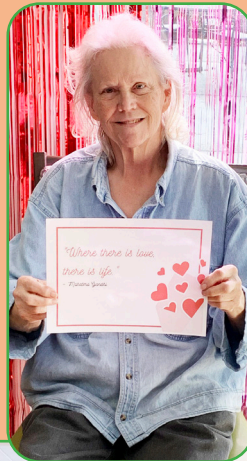 "Where there is love,
there is life."
- Mahatma Gandhi